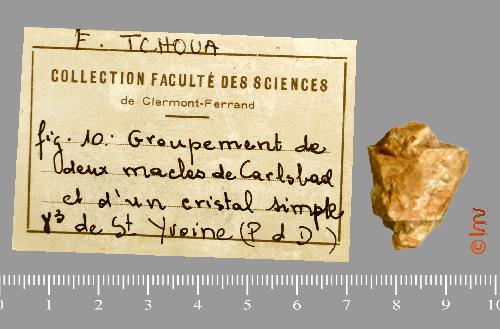 F. TCHOUA
COLLECTION FACULTÉ DES SCIENCES
de Clermont-Ferrand
fig. 10. Groupement de
deux macles de Carlsbad
et d'un cristal simple
γ³ de St Yvoine (P d D)
0 1 2 3 4 5 6 7 8 9 10